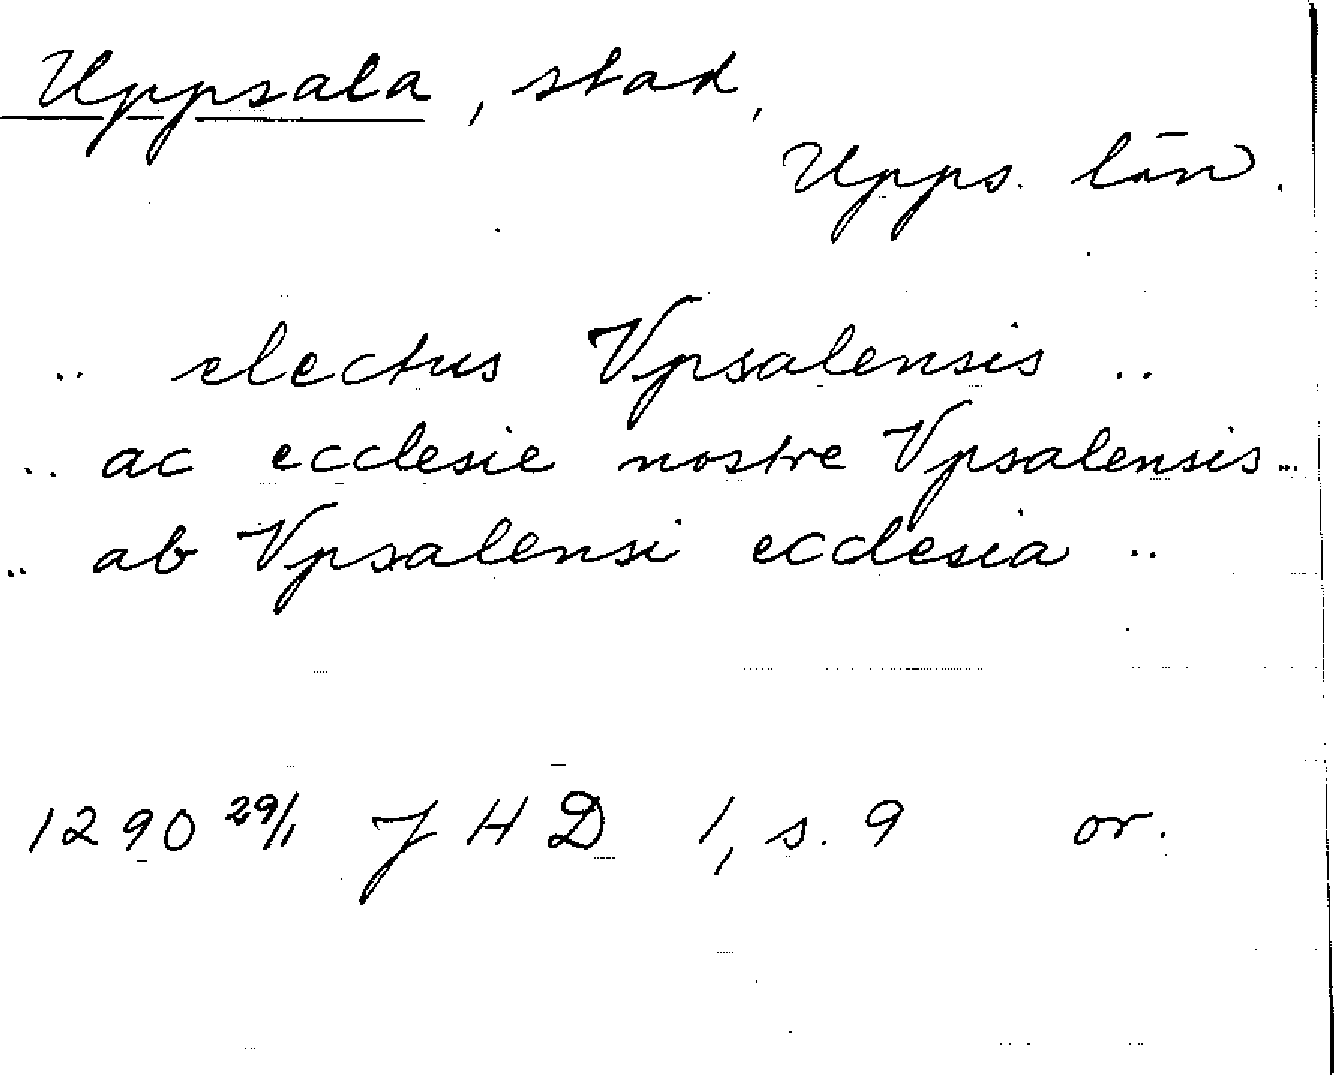 Uppsala, stad,
Upps. län.
.. electus Vpsalensis ..
.. ac ecclesie nostre Vpsalensis ..
.. ab Vpsalensi ecclesia ..
1290 29/1 J H D 1, s. 9 or.